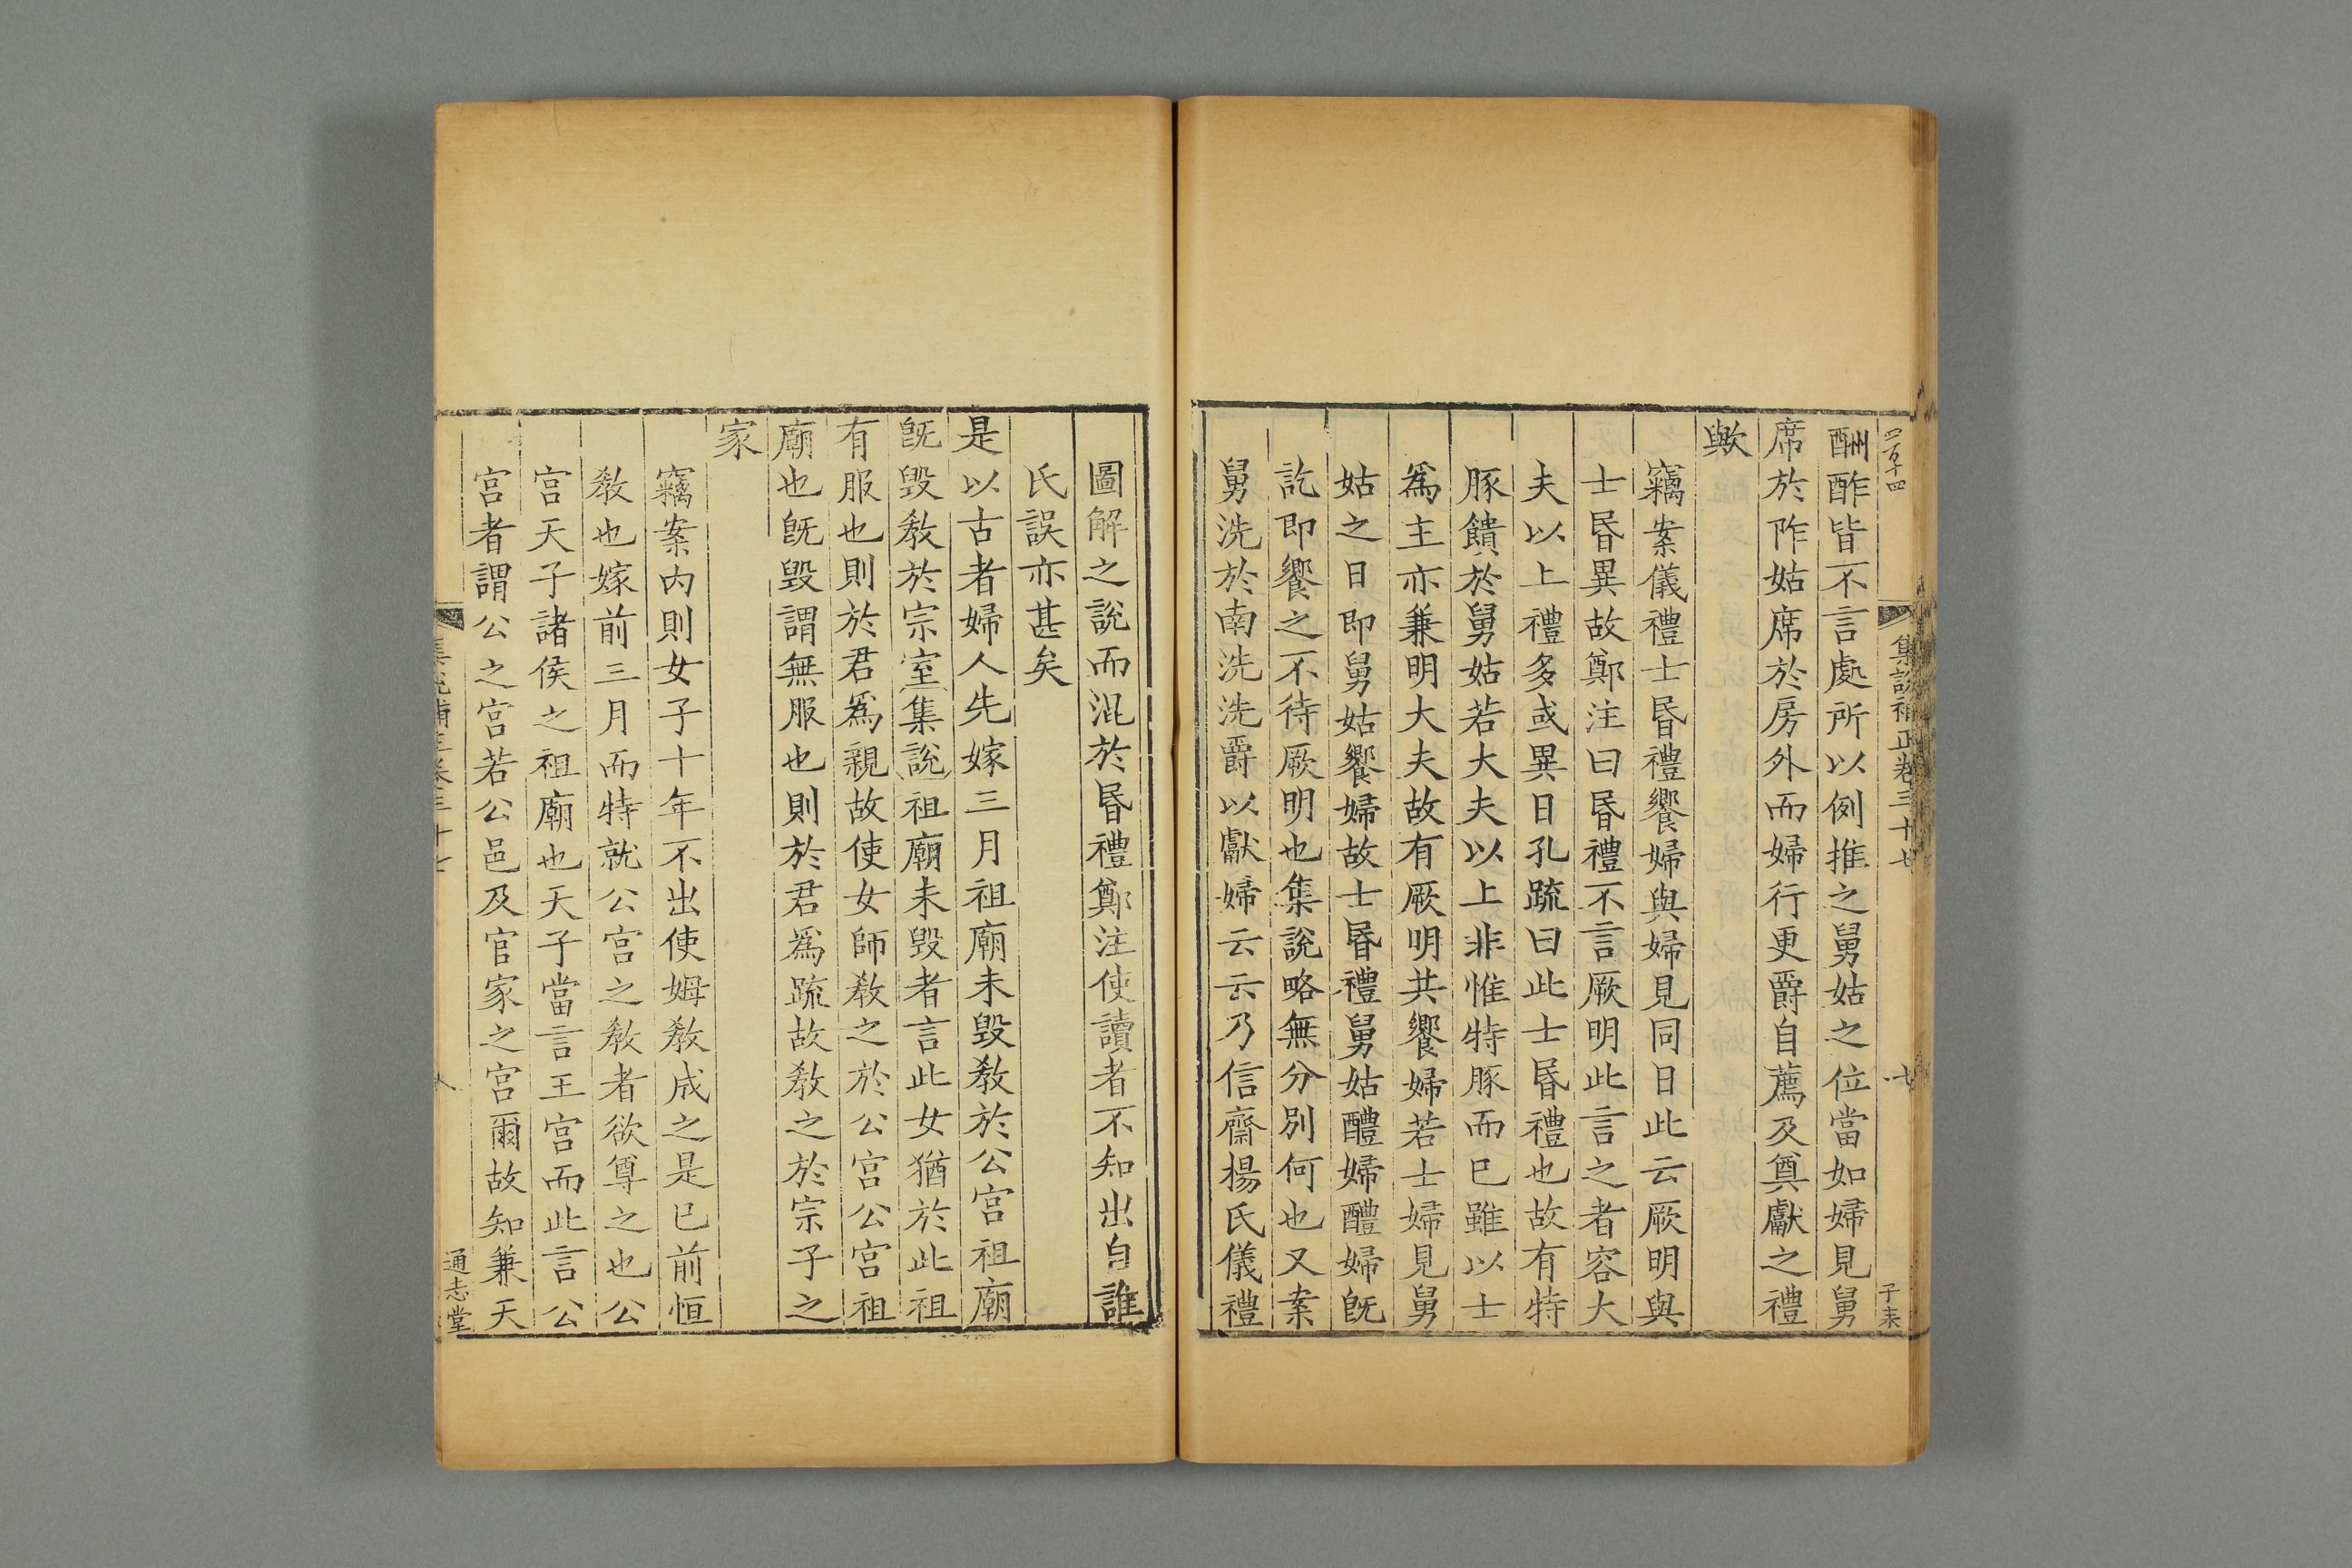 四百十四
集說補正卷三十七
七
子耒
酬酢皆不言處所以例推之舅姑之位當如婦見舅
席於阼姑席於房外而婦行更爵自薦及奠獻之禮
歟
竊案儀禮士昬禮饗婦與婦見同日此云厥明與
士昬異故鄭注曰昬禮不言厥明此言之者容大
夫以上禮多或異日孔疏曰此士昬禮也故有特
豚饋於舅姑若大夫以上非惟特豚而已雖以士
爲主亦兼明大夫故有厥明共饗婦若士婦見舅
姑之日即舅姑饗婦故士昬禮舅姑醴婦醴婦旣
訖即饗之不待厥明也集說略無分別何也又案
舅洗於南洗洗爵以獻婦云云乃信齋楊氏儀禮
圖解之說而混於昬禮鄭注使讀者不知出自誰
氏誤亦甚矣
是以古者婦人先嫁三月祖廟未毀敎於公宮祖廟
旣毀敎於宗室集說祖廟未毀者言此女猶於此祖
有服也則於君爲親故使女師敎之於公宮公宮祖
廟也旣毀謂無服也則於君爲疏故敎之於宗子之
家
竊案內則女子十年不出使姆敎成之是已前恒
敎也嫁前三月而特就公宮之敎者欲尊之也公
宮天子諸侯之祖廟也天子當言王宮而此言公
宮者謂公之宮若公邑及官家之宮爾故知兼天
集說補正卷三十七
八
通志堂